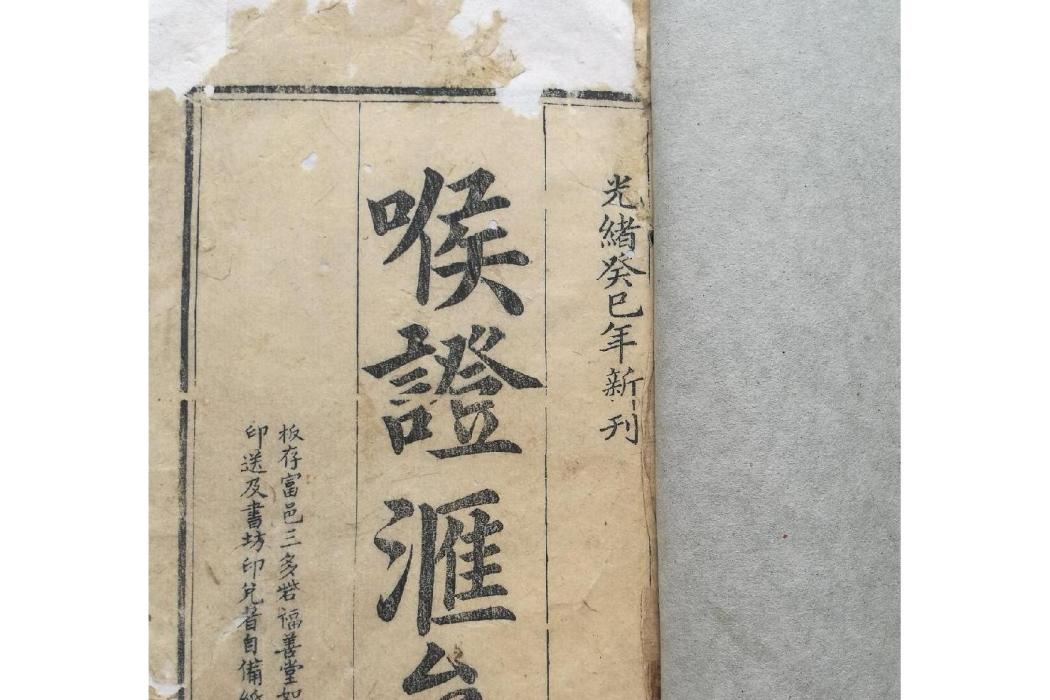 光緒癸巳年新刊
喉證滙
板存富邑三多砦福善堂如
印送及書坊印兌者自備紙